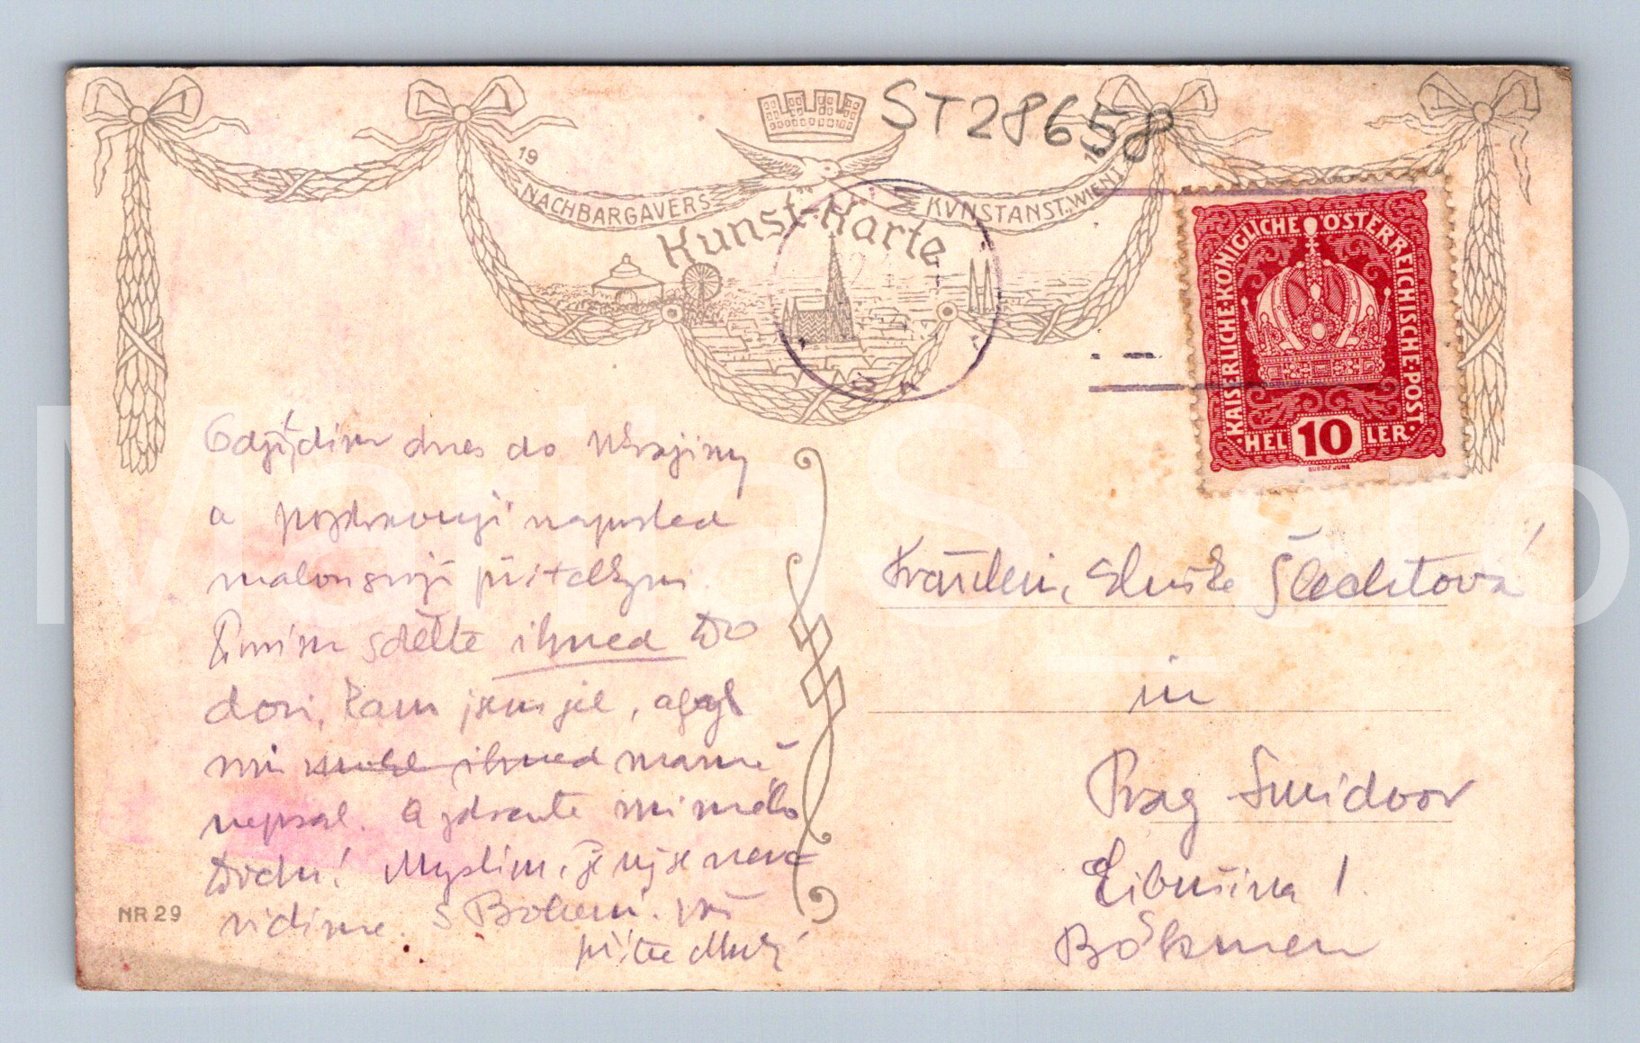 ST28658
19 16
NACHBARGAVERS KVNSTANST. WIEN I.
Kunst-Karte
KAISERLICHE·KÖNIGLICHE ÖSTERREICHISCHE·POST
HELLER
10
Odjíždím dnes do Ukrajiny
a pozdravuji naposled
svoji přítelkyni
Prosím sdělte ihned
kam jsem jel, abych
mi ihned mamě
nepsal. A zdravte mi
Myslím, že
vidíme. S Bohem. Váš
přítel
Fräulein, Eluške Šlechtová
in
Prag Smichov
Libušina 1.
Böhmen
NR 29